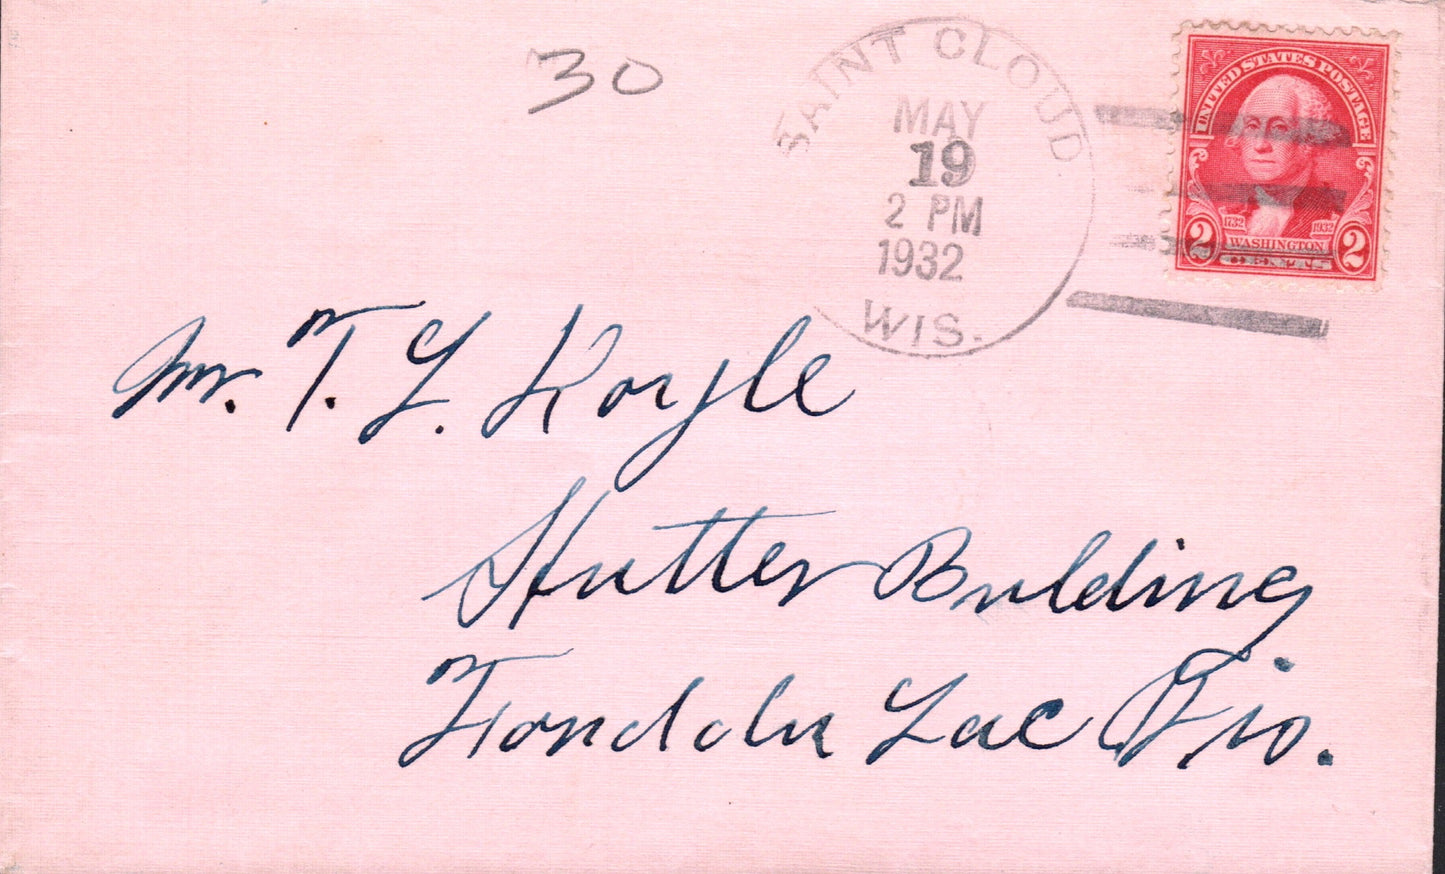 30
SAINT CLOUD
MAY
19
2 PM
1932
WIS.
UNITED STATES POSTAGE
1732 1932
2 WASHINGTON 2
CENTS
Mr. T. L. Koyle
Hutter Building
Fond du Lac Wis.